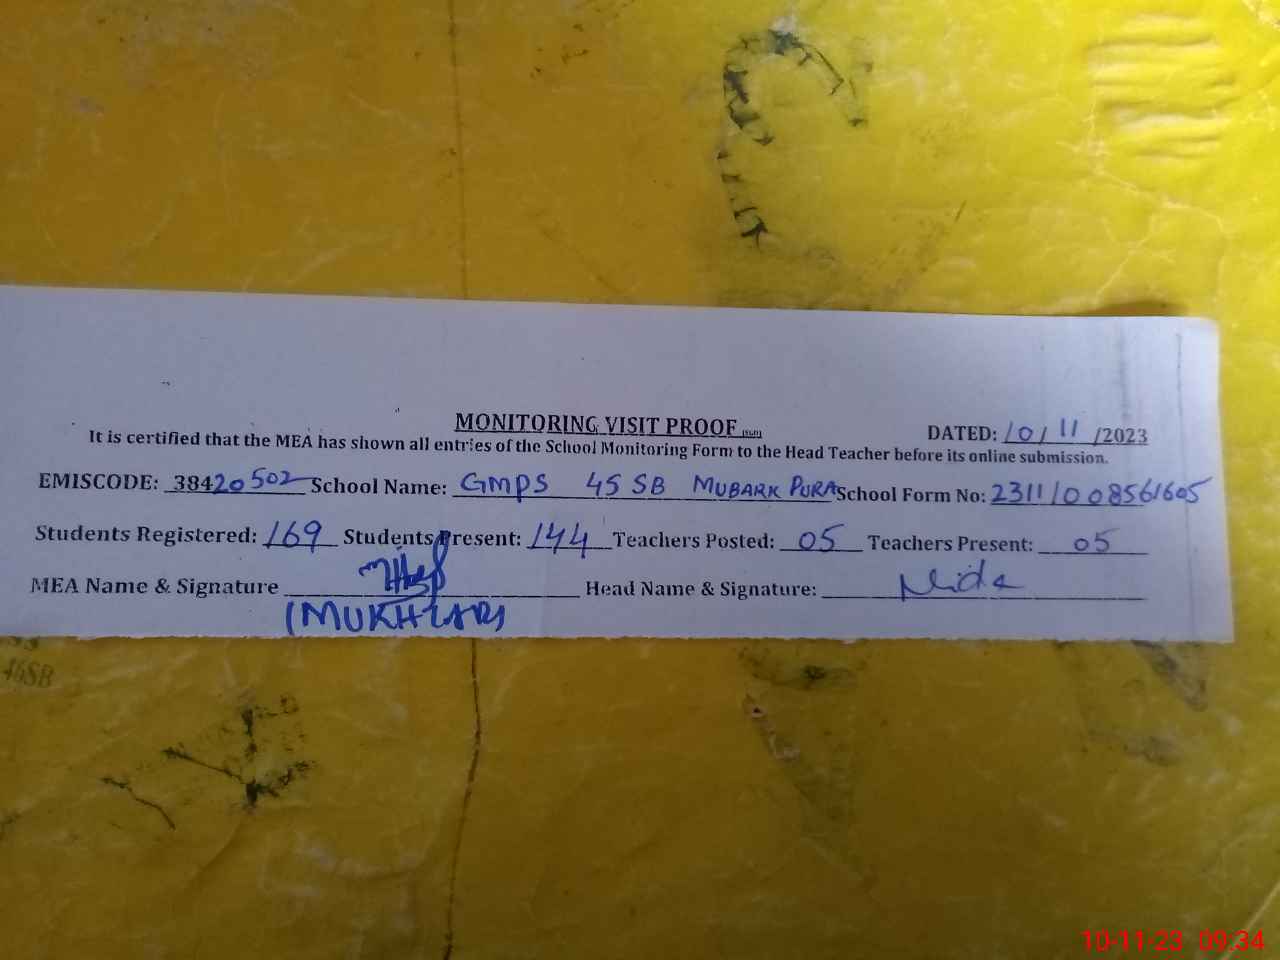 MONITORING VISIT PROOF (SGD)
DATED: 10/11/2023
It is certified that the MEA has shown all entries of the School Monitoring Form to the Head Teacher before its online submission.
EMISCODE: 38420502 School Name: GMPS 45 SB MUBARK PURA School Form No: 23111008561605
Students Registered: 169 Students Present: 144 Teachers Posted: 05 Teachers Present: 05
MEA Name & Signature Head Name & Signature: Nida
(MUKHTAR)
46SB
10-11-23 09:34